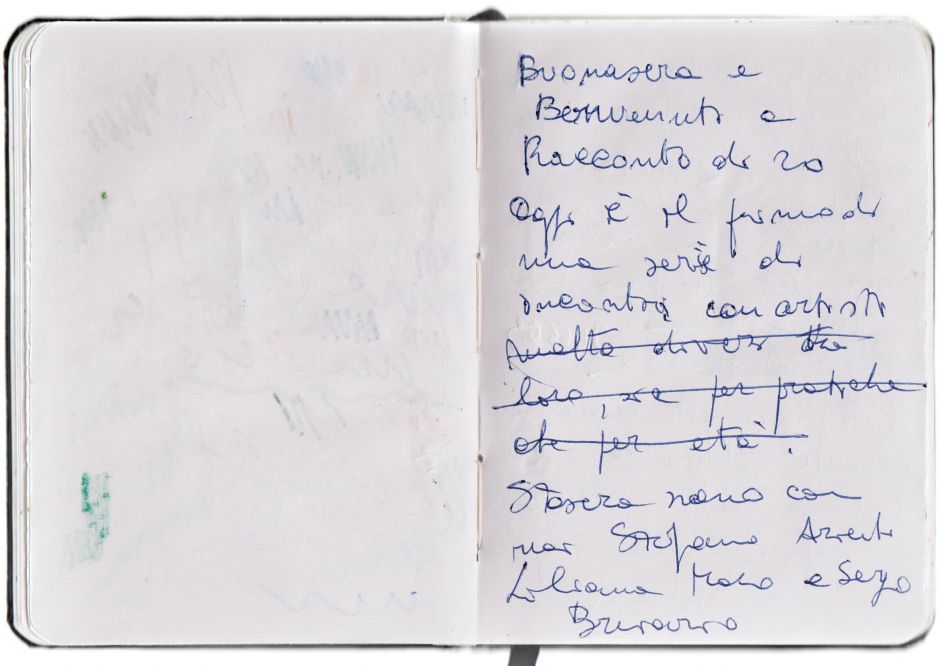 Buonasera e
Benvenuti a
Racconto di 20
Oggi è il primo di
una serie di
incontri con artisti
molto diversi tra
loro, sia per pratiche
che per età.
Stasera sono con
noi Stefano Arienti
Liliana Moro e Sergio